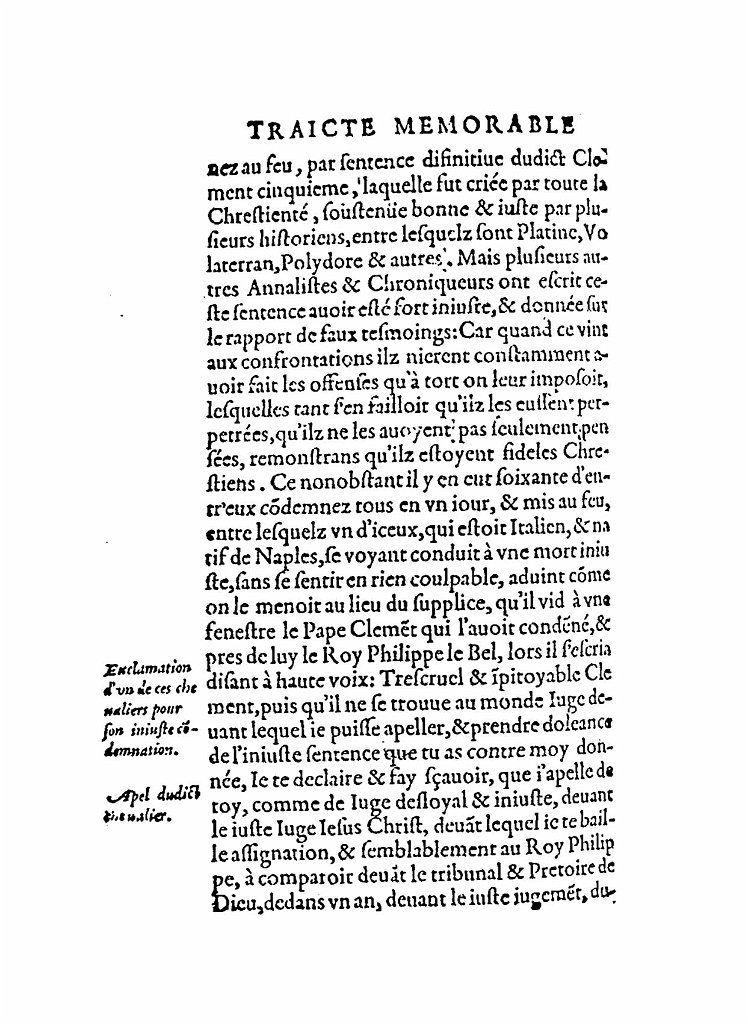 TRAICTE MEMORABLE
nez au feu, par ſentence difinitiue dudict Cle-
ment cinquieme, laquelle fut criée par toute la
Chreſtienté, ſouſtenüe bonne & iuſte par plu-
ſieurs hiſtoriens, entre leſquelz ſont Platine, Vo
laterran, Polydore & autres. Mais pluſieurs au-
tres Annaliſtes & Chroniqueurs ont eſcrit ce-
ſte ſentence auoir eſté fort iniuſte, & donnée ſur
le rapport de faux teſmoings: Car quand ce vint
aux confrontations ilz nierent conſtamment a-
uoir fait les offenſes qu'à tort on leur impoſoit,
leſquelles tant ſ'en failloit qu'ilz les euſſent per-
petrées, qu'ilz ne les auoyent pas ſeulement pen
ſées, remonſtrans qu'ilz eſtoyent fideles Chre-
ſtiens. Ce nonobſtant il y en eut ſoixante d'en-
tr'eux cõdemnez tous en vn iour, & mis au feu,
entre leſquelz vn d'iceux, qui eſtoit Italien, & na
tif de Naples, ſe voyant conduit à vne mort iniu
ſte, ſans ſe ſentir en rien coulpable, aduint cõme
on le menoit au lieu du ſupplice, qu'il vid à vne
feneſtre le Pape Clemẽt qui l'auoit condẽné, &
pres de luy le Roy Philippe le Bel, lors il ſ'eſcria
diſant à haute voix: Treſcruel & ĩpitoyable Cle
ment, puis qu'il ne ſe trouue au monde Iuge de-
uant lequel ie puiſſe apeller, & prendre doleance
de l'iniuſte ſentence que tu as contre moy don-
née, Ie te declaire & fay ſçauoir, que i'apelle de
toy, comme de Iuge deſloyal & iniuſte, deuant
le iuſte Iuge Ieſus Chriſt, deuãt lequel ie te bail-
le aſſignation, & ſemblablement au Roy Philip
pe, à comparoir deuãt le tribunal & Pretoire de
Dieu, dedans vn an, deuant le iuſte iugemẽt, du-
Exclamation
d'vn de ces che
ualiers pour
ſon iniuſte cõ-
demnation.
Apel dudict
cheualier.